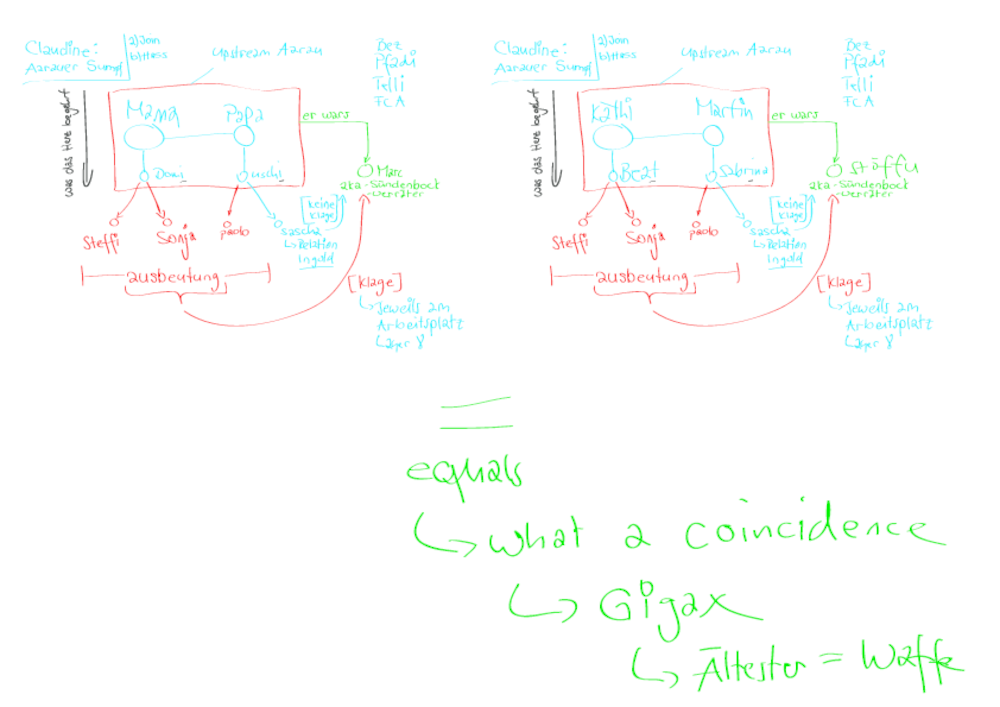 Claudine:
Aarauer Sumpf
a) Join
b) Hass
upstream Aarau
Bez
Pfadi
Telli
FCA
was das Herz begehrt
Mama
Papa
er wars
Domi
uschi
Marc
aka - Sündenbock
- Verräter
[keine
Klage]
Steffi
Sonja
paolo
sascha
↳ Relation
Ingold
ausbeutung
[Klage]
↳ Jeweils am
Arbeitsplatz
Claudine:
Aarauer Sumpf
a) Join
b) Hass
upstream Aarau
Bez
Pfadi
Telli
FCA
was das Herz begehrt
Käthi
Martin
er wars
Beat
Sabrina
Stöffu
aka - Sündenbock
- Verräter
[keine
Klage]
Steffi
Sonja
paolo
sascha
↳ Relation
Ingold
ausbeutung
[Klage]
↳ Jeweils am
Arbeitsplatz
=
equals
↳ what a coincidence
↳ Gigax
↳ Ältester = Waffe